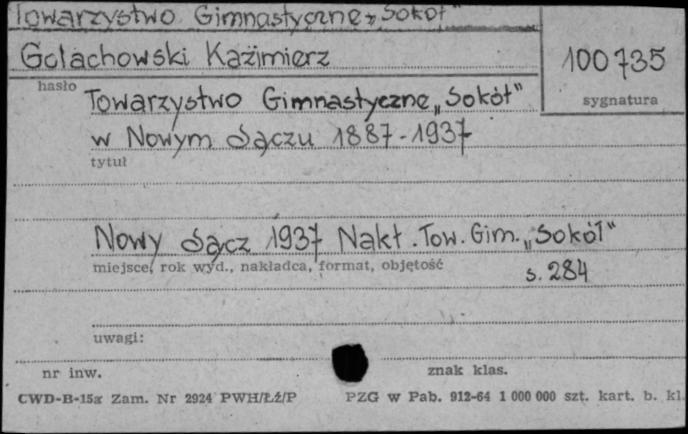 Towarzystwo Gimnastyczne „Sokół"
Golachowski Kazimierz
100735
hasło
sygnatura
Towarzystwo Gimnastyczne „Sokół"
w Nowym Sączu 1887-1937
tytuł
Nowy Sącz 1937 Nakł. Tow. Gim. „Sokół"
miejsce, rok wyd., nakładca, format, objętość
s. 284
uwagi:
nr inw.
znak klas.
CWD-B-15a Zam. Nr 2924 PWH/ŁŻ/P
PZG w Pab. 912-64 1 000 000 szt. kart. b. kl.